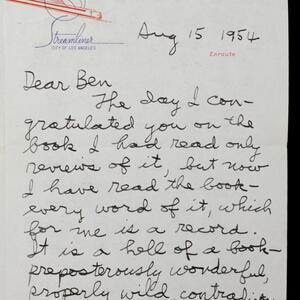 Streamliner
CITY OF LOS ANGELES
Aug 15 1954
Enroute
Dear Ben
The day I con-
gratulated you on the
book I had read only
reviews of it, but now
I have read the book-
every word of it, which
for me is a record.
It is a hell of a book-
preposterously wonderful,
properly wild